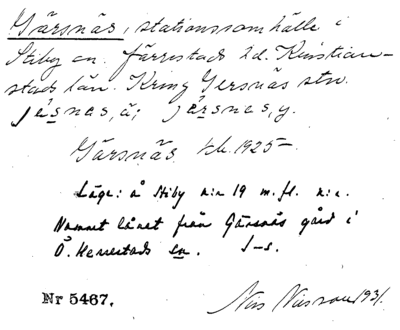 Gärsnäs, stationssamhälle i
Stiby sn. Järrestads hd. Kristian-
stads län. Kring Gersnäs stn.
jä̀snɛs, ä; jä̀rsnɛs, y.
Gärsnäs 1925-
Läge: å Stiby n:r 19 m. fl. n:r.
Namnet lånet från Gärsnäs gård i
Ö. Herrestads sn. J-s.
Nr 5467.
Nils Nilsson 1931.